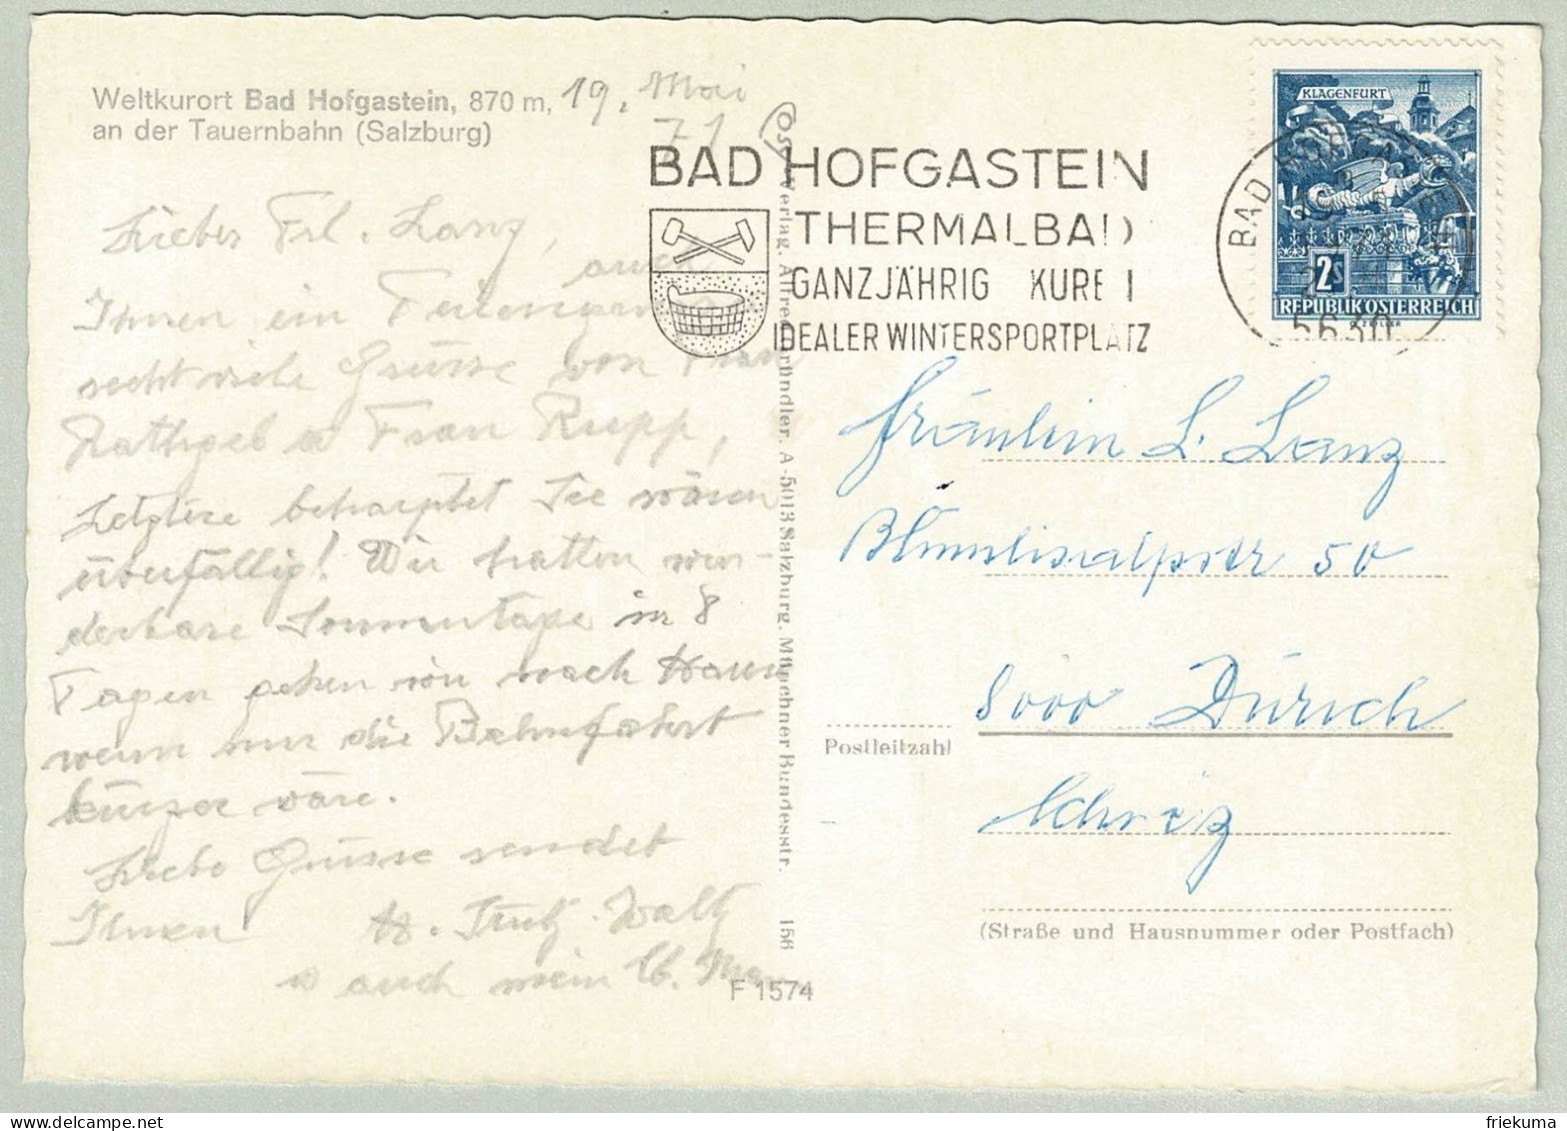 Weltkurort Bad Hofgastein, 870 m, 19. Mai
an der Tauernbahn (Salzburg) 71
Liebes Frl. Lanz,
auch
Ihnen ein
recht viele Grüsse von Frau
Rathgeb u Frau Rupp,
Letztere behauptet Sie wären
überfällig! Wir hatten wun-
derbare Sommertage in 8
Tagen gehen wir nach Hause
wenn nur die Bahnfahrt
kürzer wäre.
Liebe Grüsse sendet
Ihnen Waltz
u auch mein lb. Mann
Verlag. Alfred Gründler. A-5013 Salzburg. Münchner Bundesstr. 156
F 1574
BAD HOFGASTEIN
THERMALBAD
GANZJÄHRIG KURE I
IDEALER WINTERSPORTPLATZ
KLAGENFURT
2S
REPUBLIK ÖSTERREICH
BAD HOFGASTEIN
5630
Fräulein L. Lanz
Blümlisalpstr 50
8000 Zürich
Postleitzahl
Schweiz
(Straße und Hausnummer oder Postfach)
friekuma